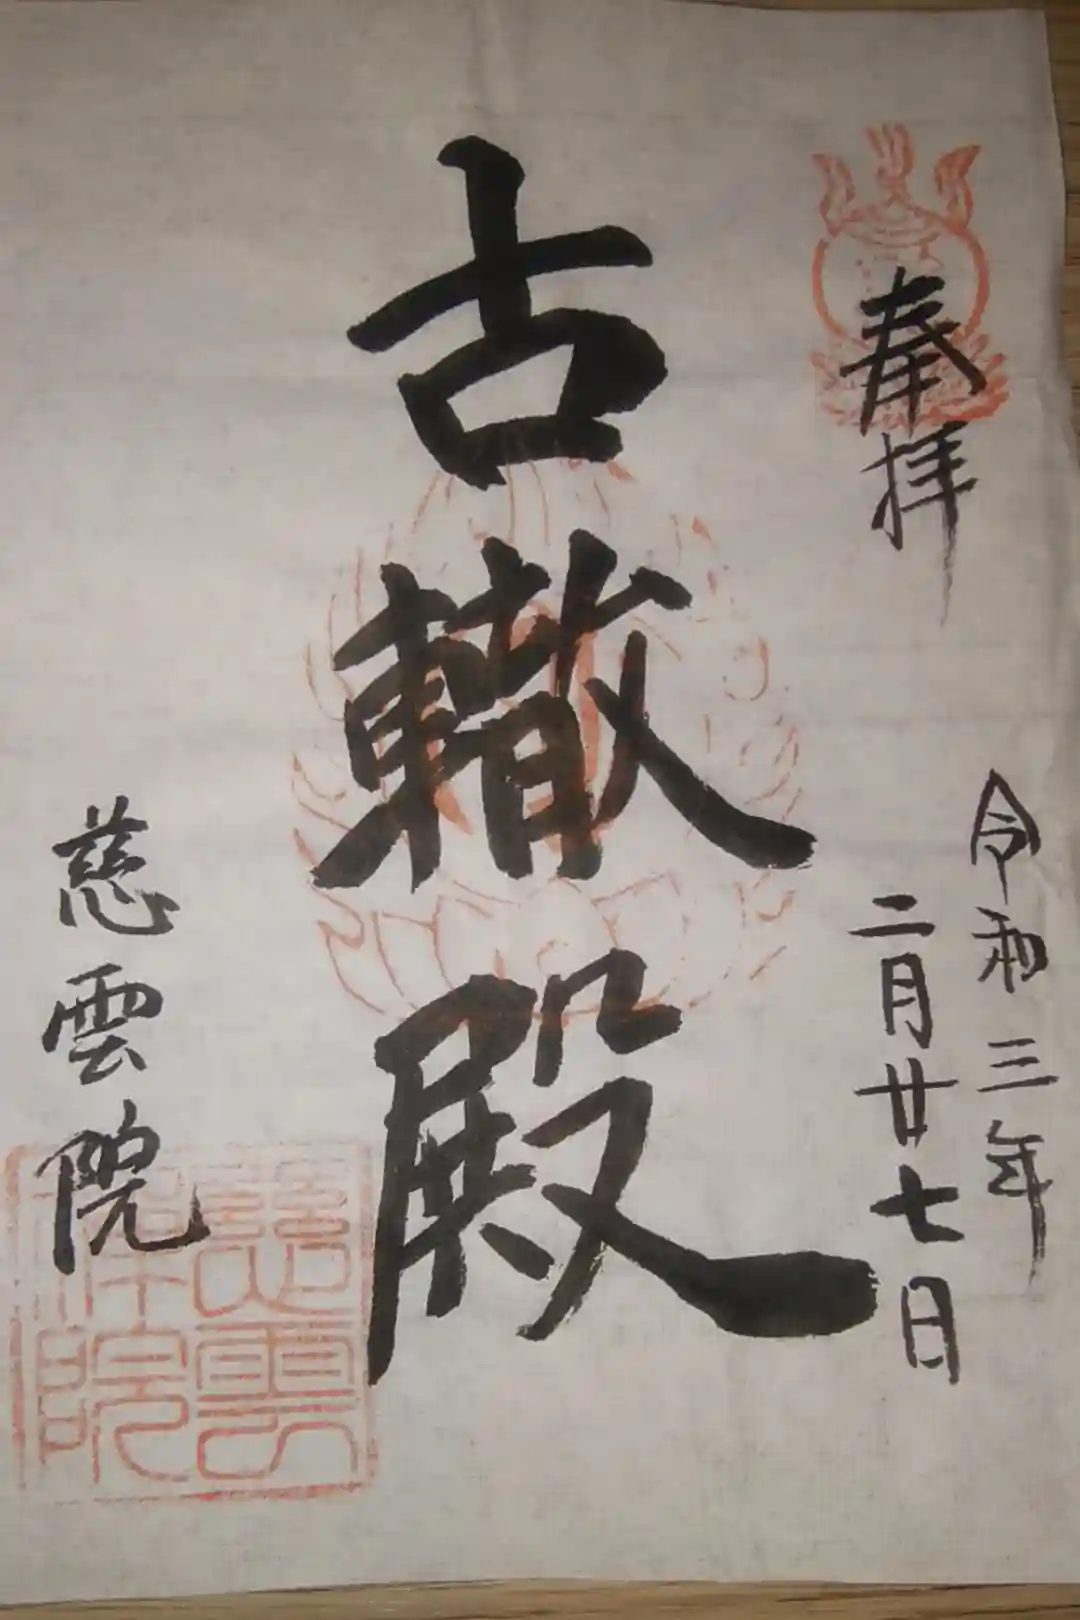 奉拝
令和三年
二月廿七日
古轍殿
慈雲院